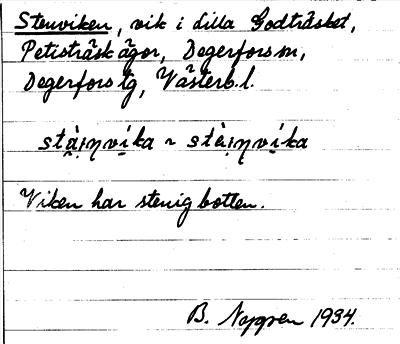 Stenviken, vik i Lilla Godträsket,
Petisträsk ägor, Degerfors sn,
Degerfors tg, Västerb. l.
stà̤i̯ŋvı́ka ~ stà̤i̯ŋvı́ka
Viken har stenig botten.
B. 1934.